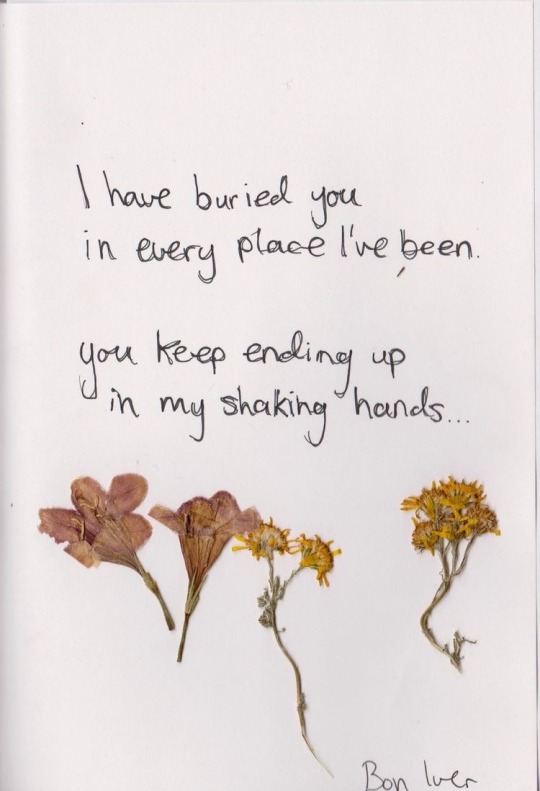 I have buried you
in every place I've been.
you keep ending up
in my shaking hands...
Bon Iver